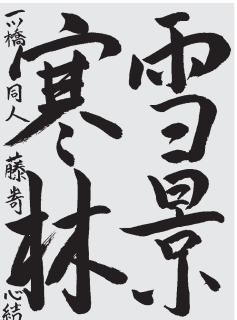 雪景
寒林
一ツ橋同人 藤嵜心結